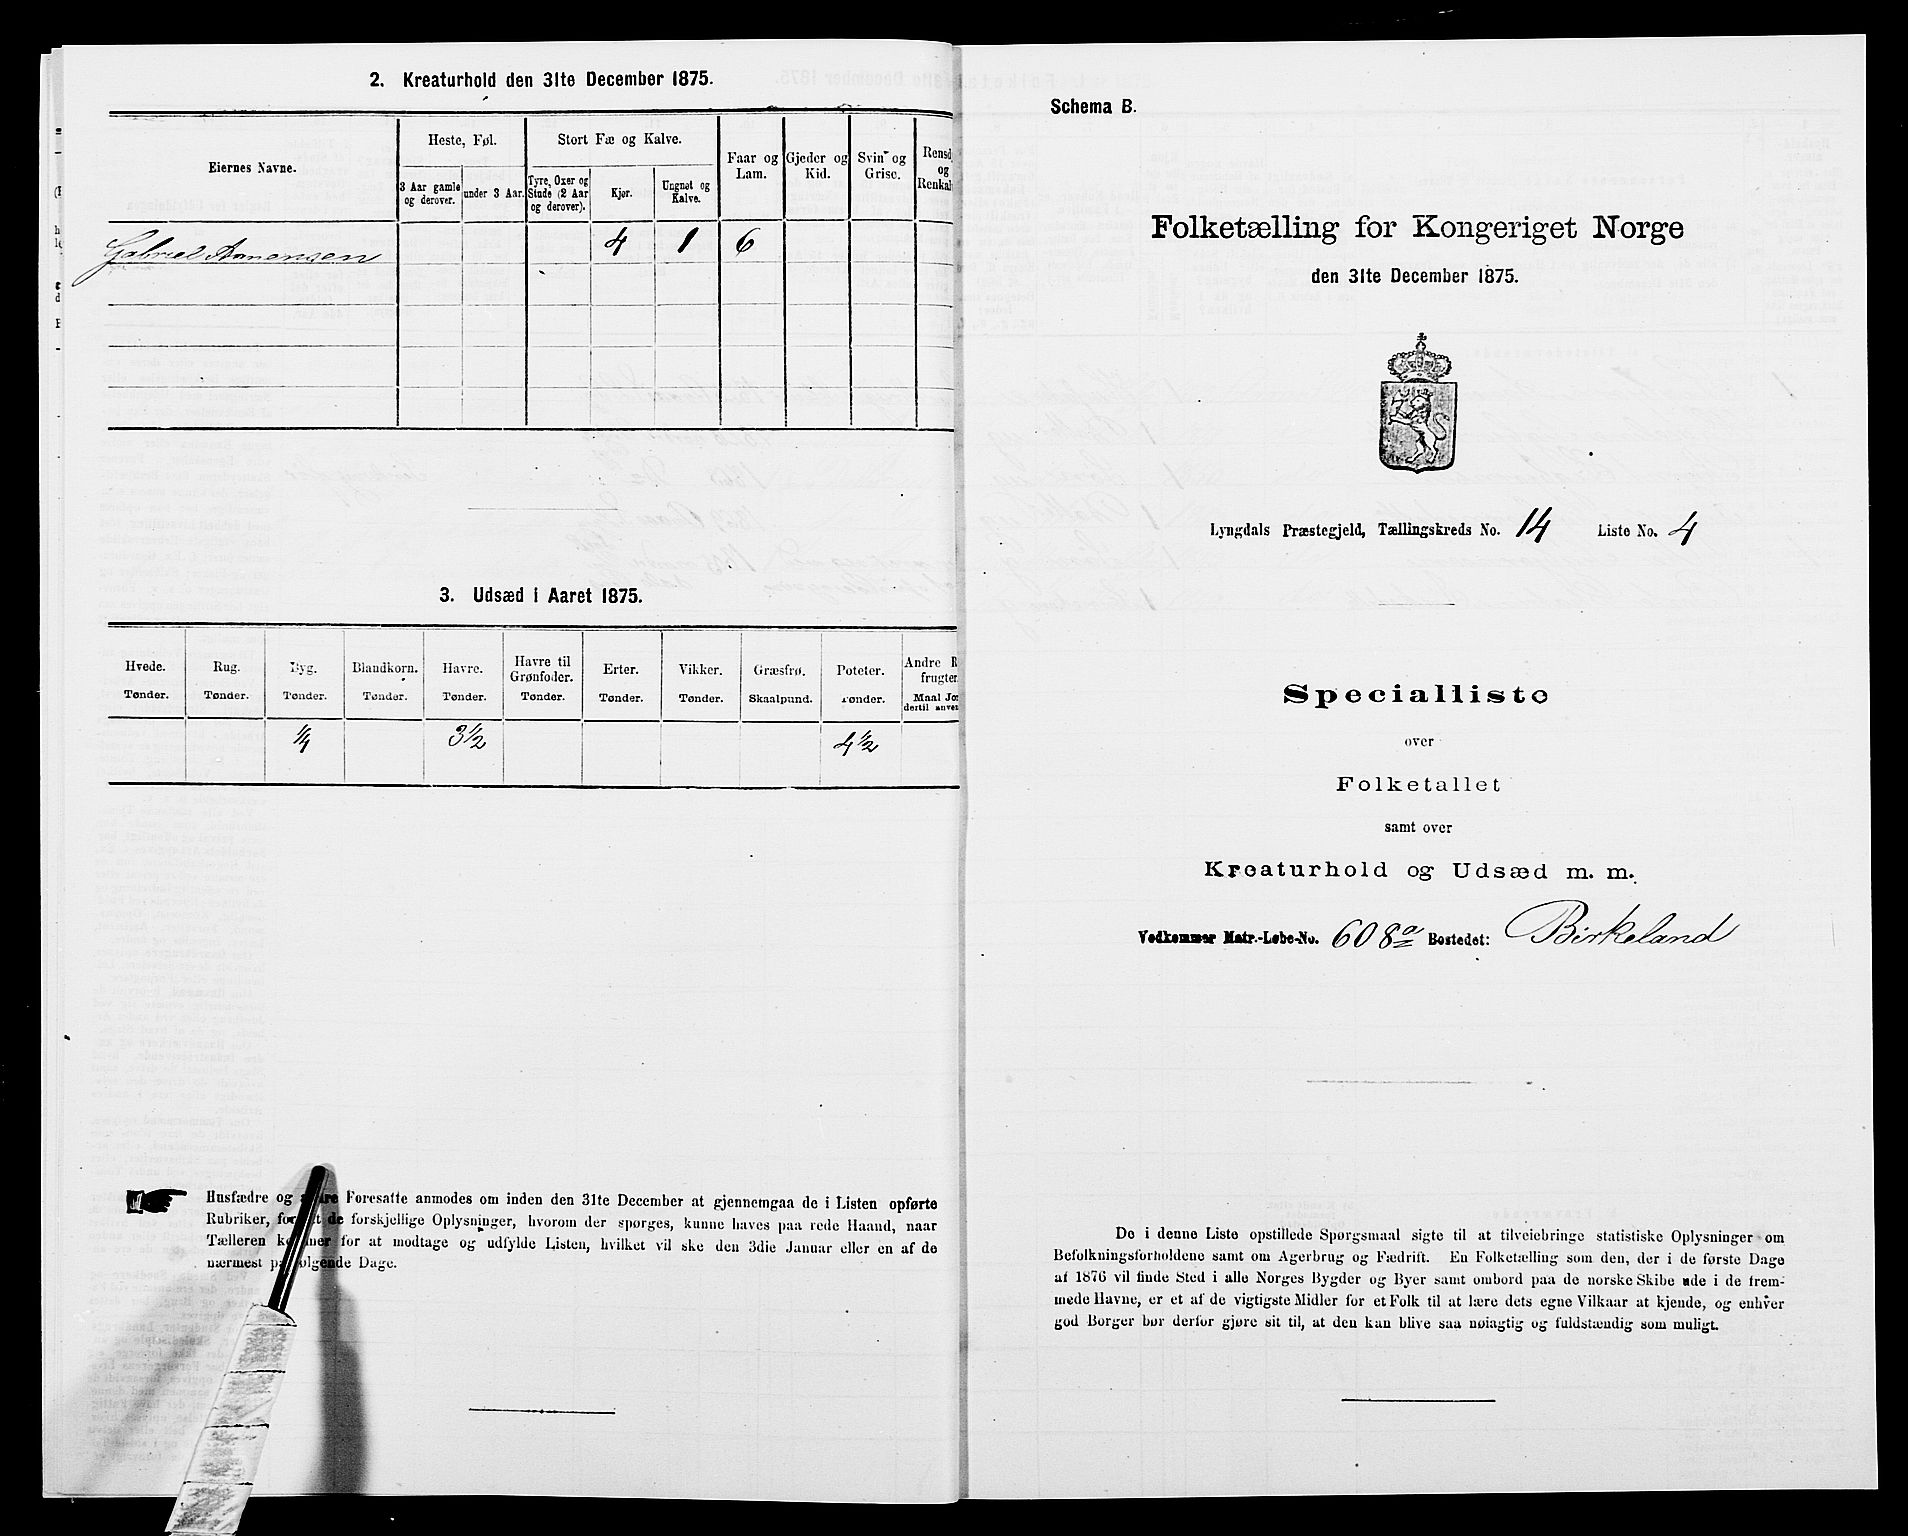 2. Kreaturhold den 31te December 1875.
Eiernes Navne.
Heste, Føl.
Stort Fæ og Kalve.
Faar og
Lam.
Gjeder og
Kid.
Svin og
Grise.
Rensd
og
Renkal
3 Aar gamle
og derover.
under 3 Aar.
Tyre, Oxer og
Stude (2 Aar
og derover).
Kjør.
Ungnøt og
Kalve.
Gabriel Aanensen 4 1 6
3. Udsæd i Aaret 1875.
Hvede.
Tønder.
Rug.
Tønder.
Byg.
Tønder.
Blandkorn.
Tønder.
Havre.
Tønder.
Havre til
Grønfoder.
Tønder.
Erter.
Tønder.
Vikker.
Tønder.
Græsfrø.
Skaalpund.
Poteter.
Tønder.
Andre R
frugter.
Maal Jor
dertil anven
1/4 3 1/2 4 1/2
Husfædre og andre Foresatte anmodes om inden den 31te December at gjennemgaa de i Listen opførte
Rubriker, for at de forskjellige Oplysninger, hvorom der spørges, kunne haves paa rede Haand, naar
Tælleren kommer for at modtage og udfylde Listen, hvilket vil ske den 3die Januar eller en af de
nærmest paafølgende Dage.
Schema B.
Folketælling for Kongeriget Norge
den 31te December 1875.
Lyngdals Præstegjeld, Tællingskreds No. 14 Liste No. 4
Specialliste
over
Folketallet
samt over
Kreaturhold og Udsæd m. m.
Vedkommer Matr.-Løbe-No. 608a Bostedet: Birkeland
De i denne Liste opstillede Spørgsmaal sigte til at tilveiebringe statistiske Oplysninger om
Befolkningsforholdene samt om Agerbrug og Fædrift. En Folketælling som den, der i de første Dage
af 1876 vil finde Sted i alle Norges Bygder og Byer samt ombord paa de norske Skibe ude i de frem-
mede Havne, er et af de vigtigste Midler for et Folk til at lære dets egne Vilkaar at kjende, og enhver
god Borger bør derfor gjøre sit til, at den kan blive saa nøiagtig og fuldstændig som muligt.